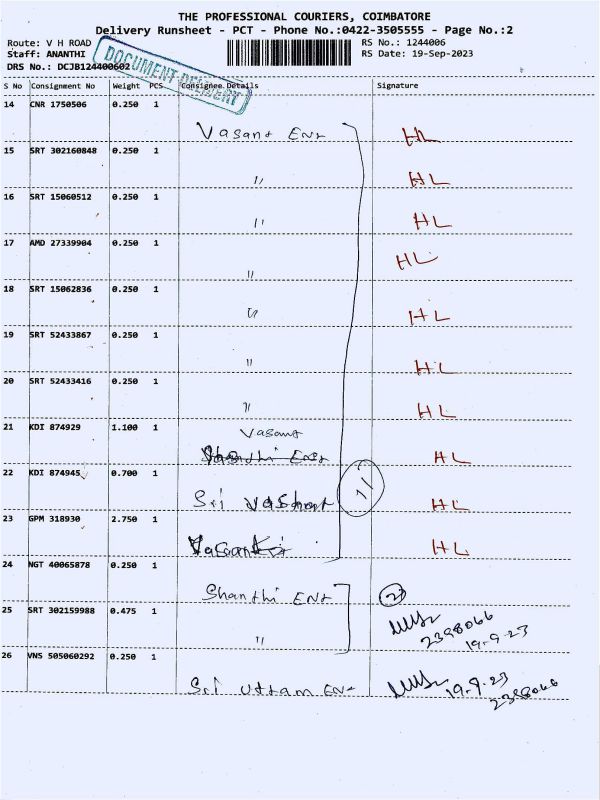 THE PROFESSIONAL COURIERS, COIMBATORE
Delivery Runsheet - PCT - Phone No.:0422-3505555 - Page No.:2
Route: V H ROAD
RS No.: 1244006
Staff: ANANTHI
RS Date: 19-Sep-2023
DRS No.: DCJB124400602
DOCUMENT DELIVERY
S No Consignment No Weight PCS Consignee Details Signature
14 CNR 1750506 0.250 1
Vasant Ent HL
15 SRT 302160848 0.250 1
" HL
16 SRT 15060512 0.250 1
" HL
17 AMD 27339904 0.250 1
" HL
18 SRT 15062836 0.250 1
" HL
19 SRT 52433867 0.250 1
" HL
20 SRT 52433416 0.250 1
" HL
21 KDI 874929 1.100 1
Vasant
HL
22 KDI 874945 0.700 1
Sri HL
11
23 GPM 318930 2.750 1
HL
24 NGT 40065878 0.250 1
Shanthi Ent 2
25 SRT 302159988 0.475 1
" 2398066
19-9-23
26 VNS 505060292 0.250 1
Sri Uttam Ent 19-9-23
2398066